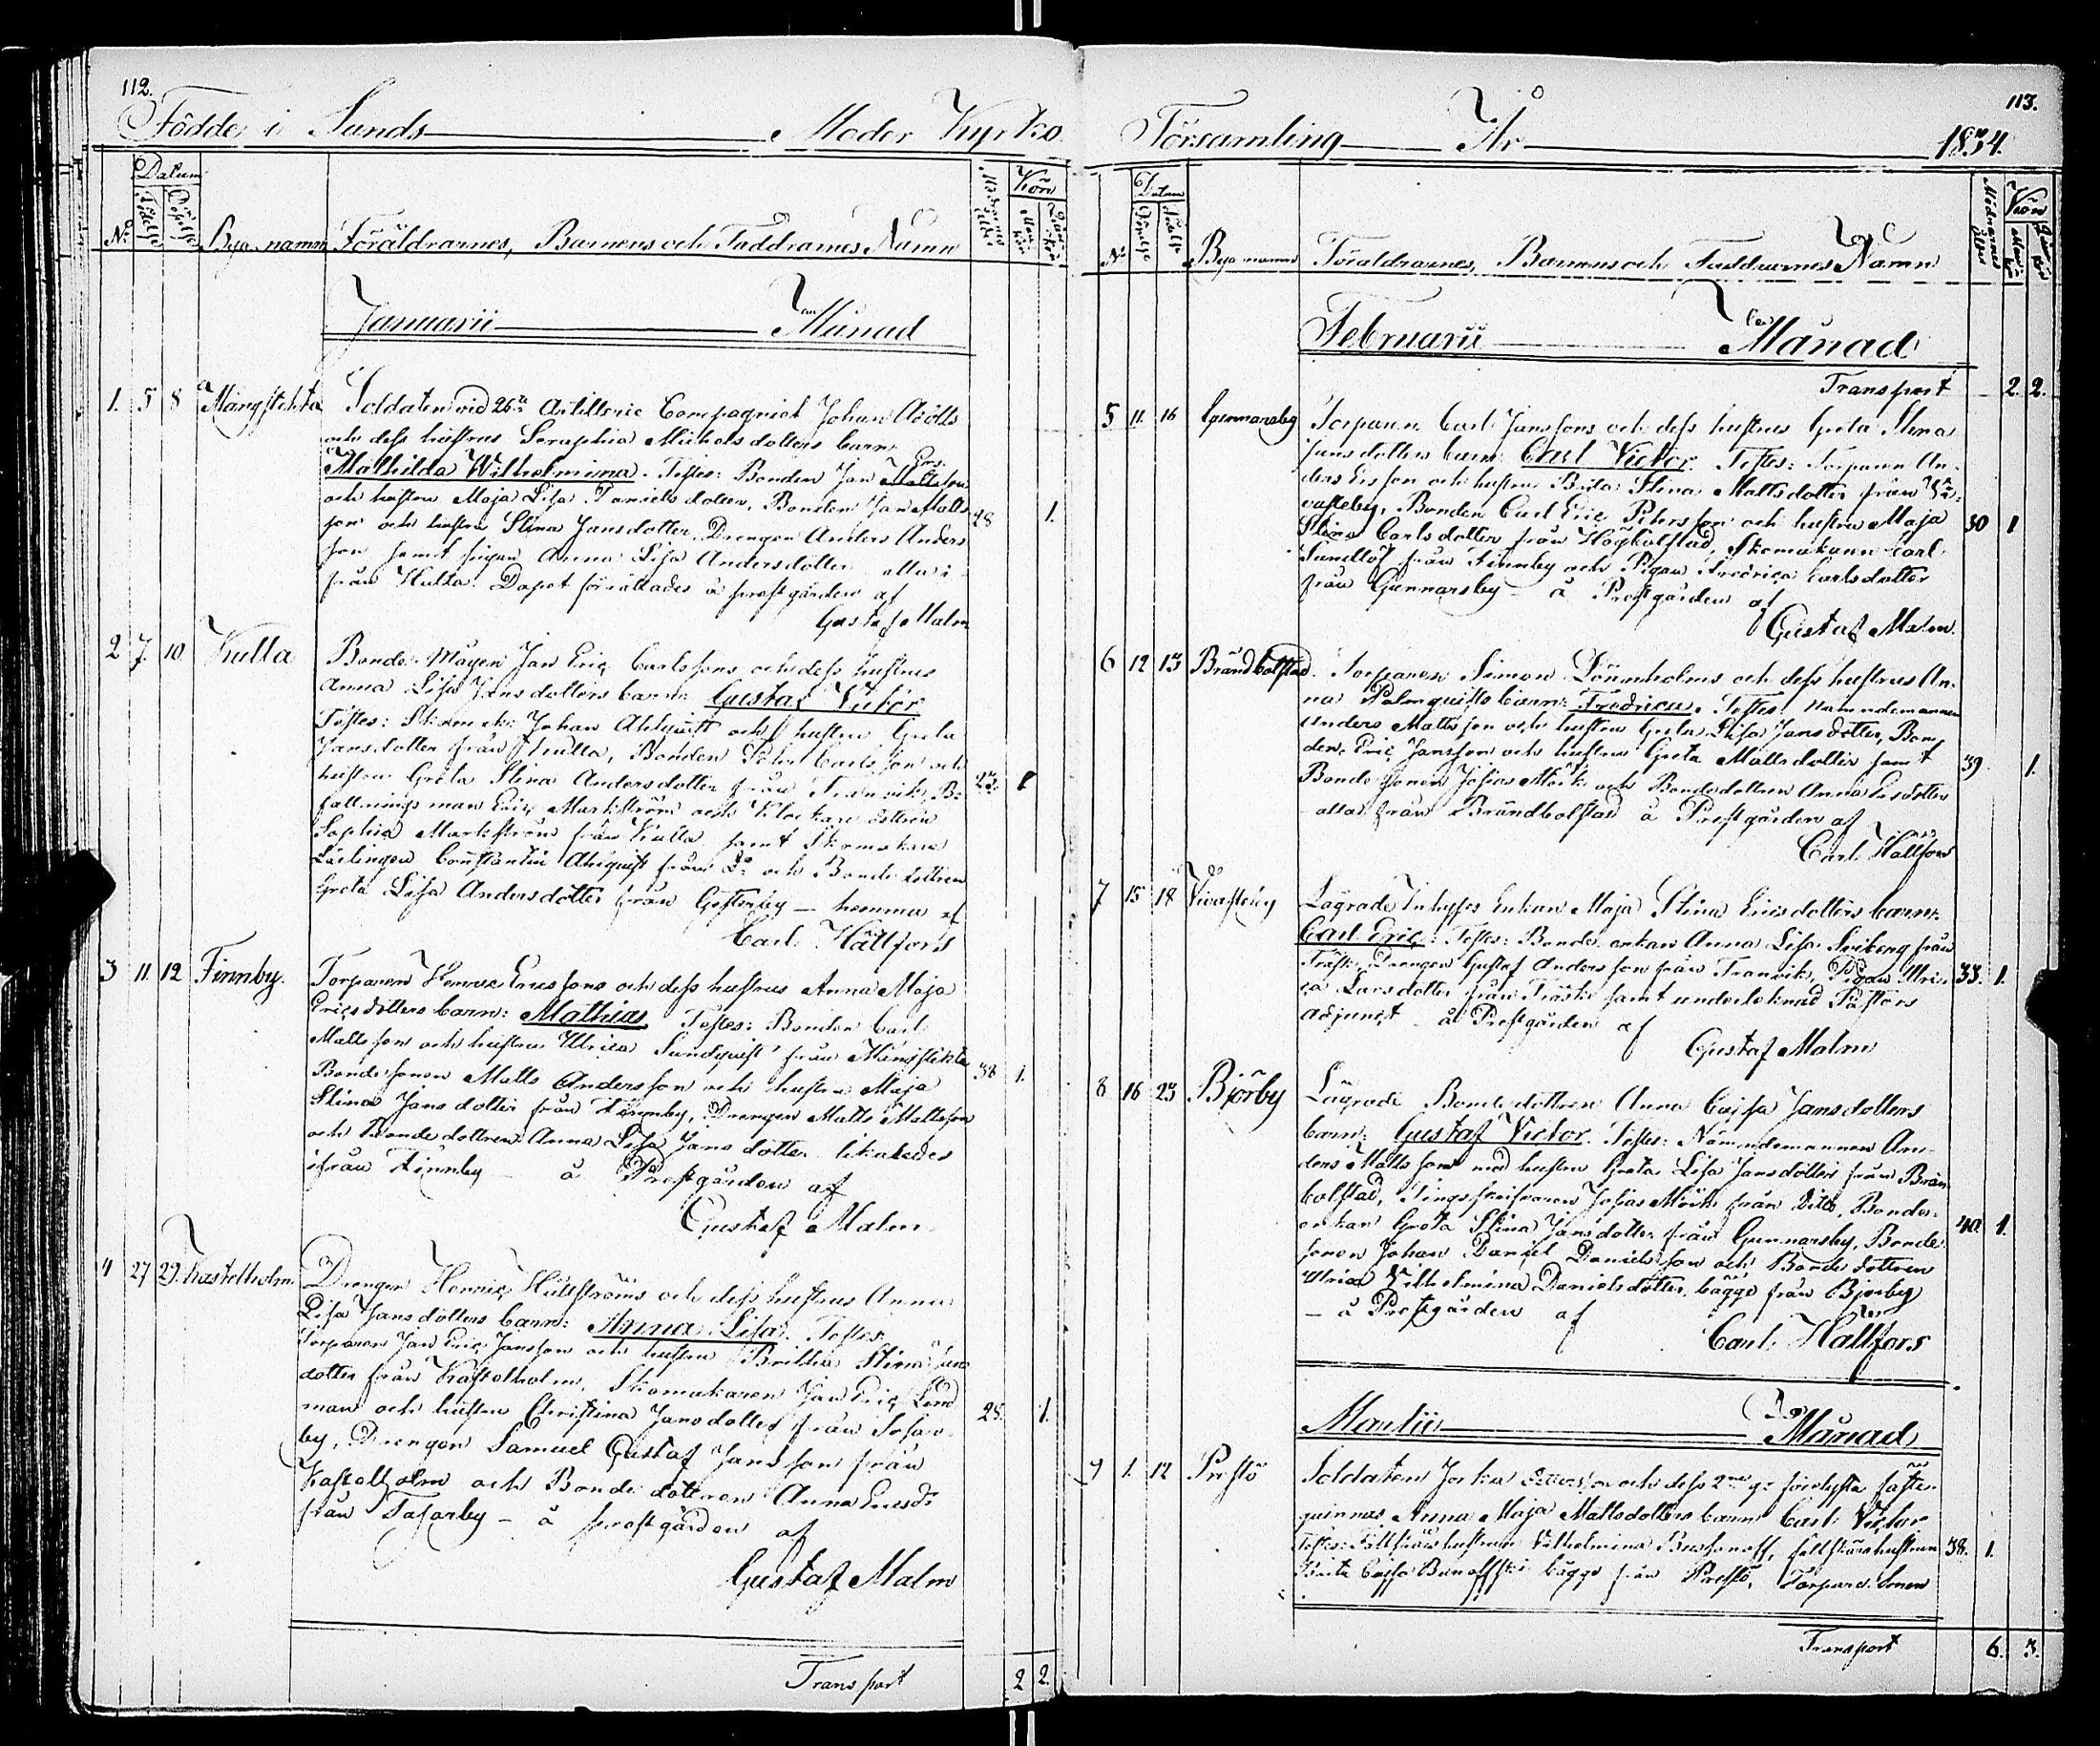 112.
Födde i Sunds Moder Kyrko
Datum
Kön
No
Födelse
Döpelse
Bya namn
Föräldrarnes, Barnens och Faddrarnes Namn
Mödrarnes ålder
Man kön
Januarii Månad
1. 5 8 Mångstekta Soldaten vid 26te Artillerie Compagniet Johan
och dess hustrus Seraphia Michelsdotters barn
Mathilda Wilhelmina. Testes: Bonden Jan
och hustru Maja Lisa Danielsdotter, Bonden Jan Matts
son och hustru Stina Jansdotter, Drengen Anders Anders 28 1.
son samt pigan Anna Lisa Andersdotter alla i
från Hulta. Dopet förrättades å prestgården af
Gustaf Malm
2 7. 10 Kulla Bonde Mågen Jan Eric Carlssons och dess hustrus
Anna Lisa Jansdotters barn: Gustaf Victor
Testes: Johan Ahlquist och hustru Greta
Jansdotter från Kulla, Bonden Petter Carlsson och
hustru Greta Stina Andersdotter från Tranvik, Be 23. 1
fallningsman Eric Markström och Klockare dottren
Sophia Markström från Kulla samt Skomakare
Lärlingen Constantin Ahlquist från Do och Bonde dottren
Greta Lisa Andersdotter från Gesterby – hemma af
Carl Hällfors
3 11. 12 Finnby. Torparen Henric Ericssons och dess hustrus Anna Maja
Ericsdotters barn: Mathias Testes: Bonden Carl
Mattsson och hustru Ulrica Sundquist från Mångstekta
Bonde sonen Matts Andersson och hustru Maja 38 1.
Stina Jans dotter från Finnby, Drengen Matts Mattsson
och Bonde dottren Anna Lisa Jans dotter likaledes
ifrån Finnby – å Prestgården af
Gustaf Malm
4 27 29. Kastelholm. Drengen Henric Hällströms och dess hustrus Anna
Lisa Jansdotters barn: Anna Lisa. Testes:
Torparen Jan Eric Jansson och hustru Britha Stina
dotter från Kastelholm, Skomakaren Jan Eric Lind
man och hustru Christina Jansdotter från 28. 1.
by, Drengen Samuel Gustaf Jansson från
Kastelholm och Bonde dottren Anna Ericsd:
från Tosarby – å prestgården af
Gustaf Malm
Transport 2 2.
113.
Församling År 1834.
Datum
Kön
No
Döpelse
Födelse
Bya namn
Föräldrarnes, Barnens och Faddrarnes Namn
Mödrarnes ålder
Februarii Månad
Transport 2. 2.
5 11. 16 Gunnarsby Torparen Carl Janssons och dess hustrus Greta Stina
Jansdotters barn: Carl Victor. Testes: Torparen An-
ders Ersson och hustru Brita Stina Mattsdotter från Vi-
vasteby, Bonden Carl Eric Petersson och hustru Maja 30 1
Stina Carlsdotter från Högbolstad, Skomakaren Carl
Sundlöf från Finnby och Pigan Fredrica Carlsdotter
från Gunnarsby – å Prestgården af
Gustaf Malm.
6 12 13 Brändbolstad. Torparen Simon Dönnholms och dess hustrus An-
na Palmquists barn: Fredrica. Testes: Nämndemannen
Anders Mattsson och hustru Greta Lisa Jansdotter, Bon-
den Eric Jansson och hustru Greta Mattsdotter samt 39 1.
Bonde sonen Josias Mörk och Bondedottren Anna Ersdotter
– alla från Brändbolstad å Prestgården af
Carl Hällfors
7 15 18 Vivasteby Lägrade Inhyses Enkan Maja Stina Ericsdotters barn:
Carl Eric: Testes: Bonde enkan Anna Lisa Sviberg från
Träsk, Drengen Gustaf Andersson från Tranvik, Pigan Ulri- 33. 1.
ca Larsdotter från Träsk samt undertecknad Pastors
adjunct – å Prestgården af
Gustaf Malm
8 16 23 Björby Lägrade Bondedottren Anna Cajsa Jansdotters
barn: Gustaf Victor. Testes: Nämndemannen An-
ders Mattsson med hustru Greta Lisa Jansdotter från Brän
bolstad, Tingsskrifvaren Josias Mörk från Ditto, Bonde-
enkan Greta Stina Jansdotter från Gunnarsby, Bonde 40. 1.
sonen Johan Daniel Danielsson och Bonde dottren
Ulrica Vilhelmina Danielsdotter bägge från Björby
– å Prestgården af
Carl Hällfors
Martii Månad
9 1. 12 Prestö Soldaten Jacka Pettersson och dess 2ne gr förelysta fäste-
qvinnas Anna Maja Mattsdotters barn Carl Victor
Testes: Fältskärs hustrun Vilhelmina, fältskärshustrun 38. 1.
Brita Cajsa bägge från Prestö, Torpare Sonen
Transport 6. 3.